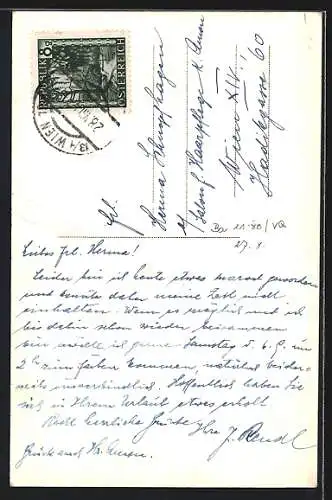 8g
REPUBLIK
ÖSTERREICH
WIEN
Frl.
Herma
Salon f. Haarpflege
Wien XIX.
60
Liebes Frl. Herma!
Leider bin ich heute etwas geworden
und konnte daher meine Zeit nicht
einhalten. Wenn es möglich und ich
bis dahin schon wieder beisammen
bin würde ich gerne Samstag d. 6. 9. um
2h zum färben kommen, natürlich beider-
seits unverbindlich. Hoffentlich haben Sie
sich in Ihrem Urlaub etwas erholt
Recht herzliche Grüße Ihre J.
Gruß auch